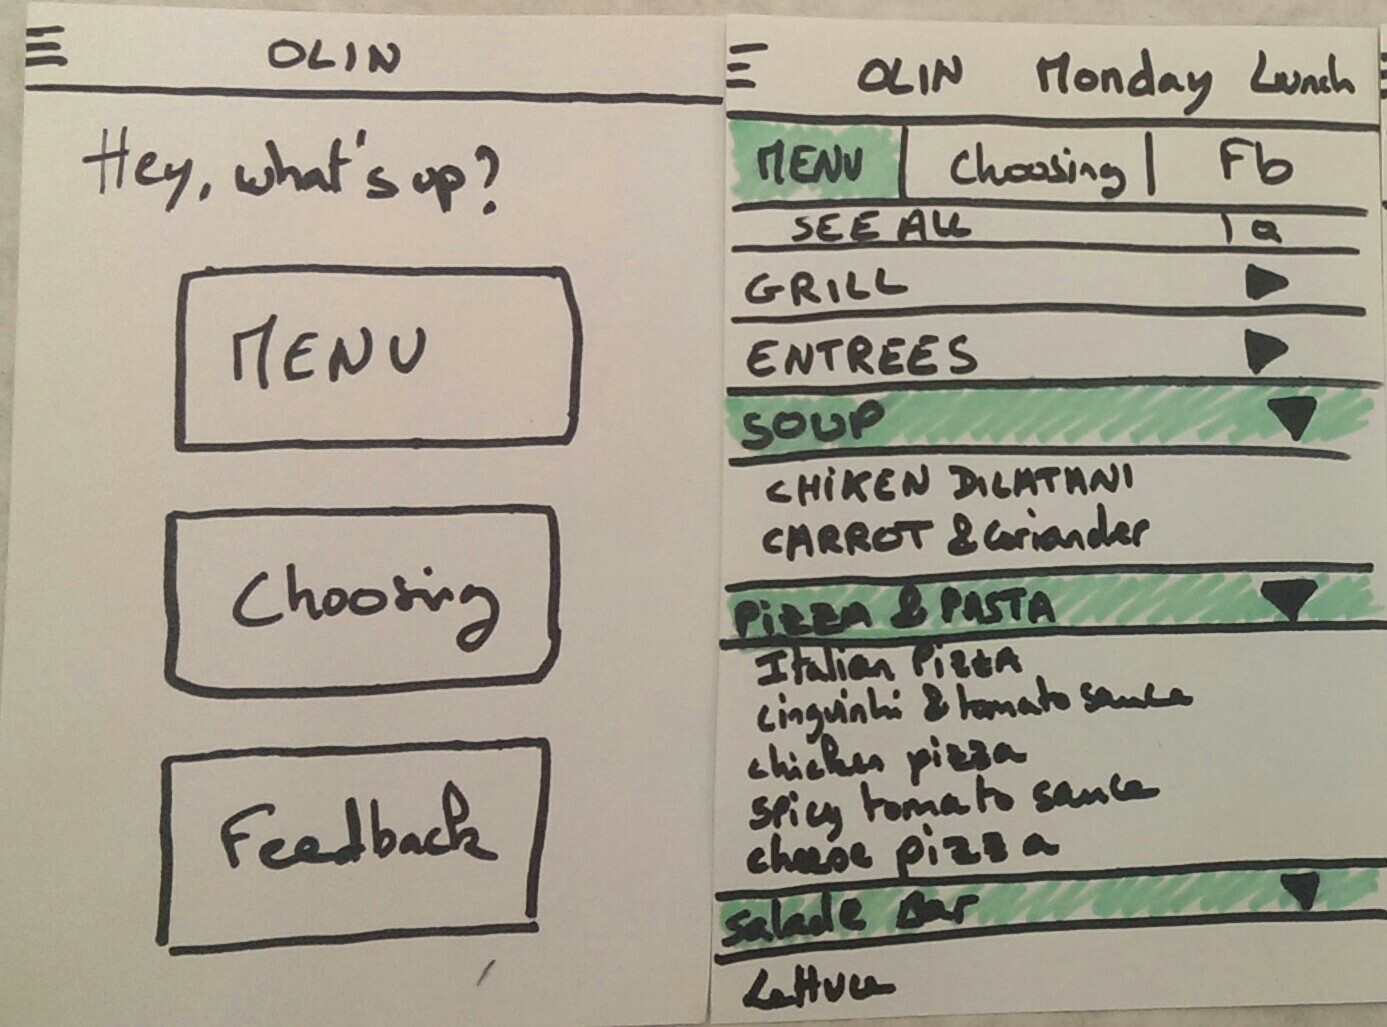 OLIN
Hey, what's up?
MENU
Choosing
Feedback
OLIN Monday Lunch
MENU Choosing Fb
SEE ALL
GRILL
ENTREES
SOUP
CHIKEN DILATANI
CARROT & Coriander
PIZZA & PASTA
Italian PizzA
& tomato sauce
chicken pizza
spicy tomato sauce
cheese pizza
Salade Bar
Lettuce